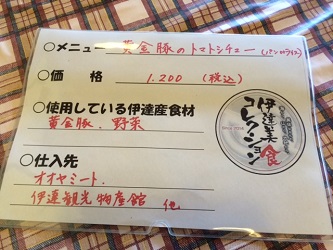 ○メニュー 黄金豚のトマトシチュー(パンorライス)
○価　格 1.200 (税込)
○使用している伊達産食材
黄金豚、野菜
○仕入先
オオヤミート、
伊達観光物産館 他
伊達美食
コレクション